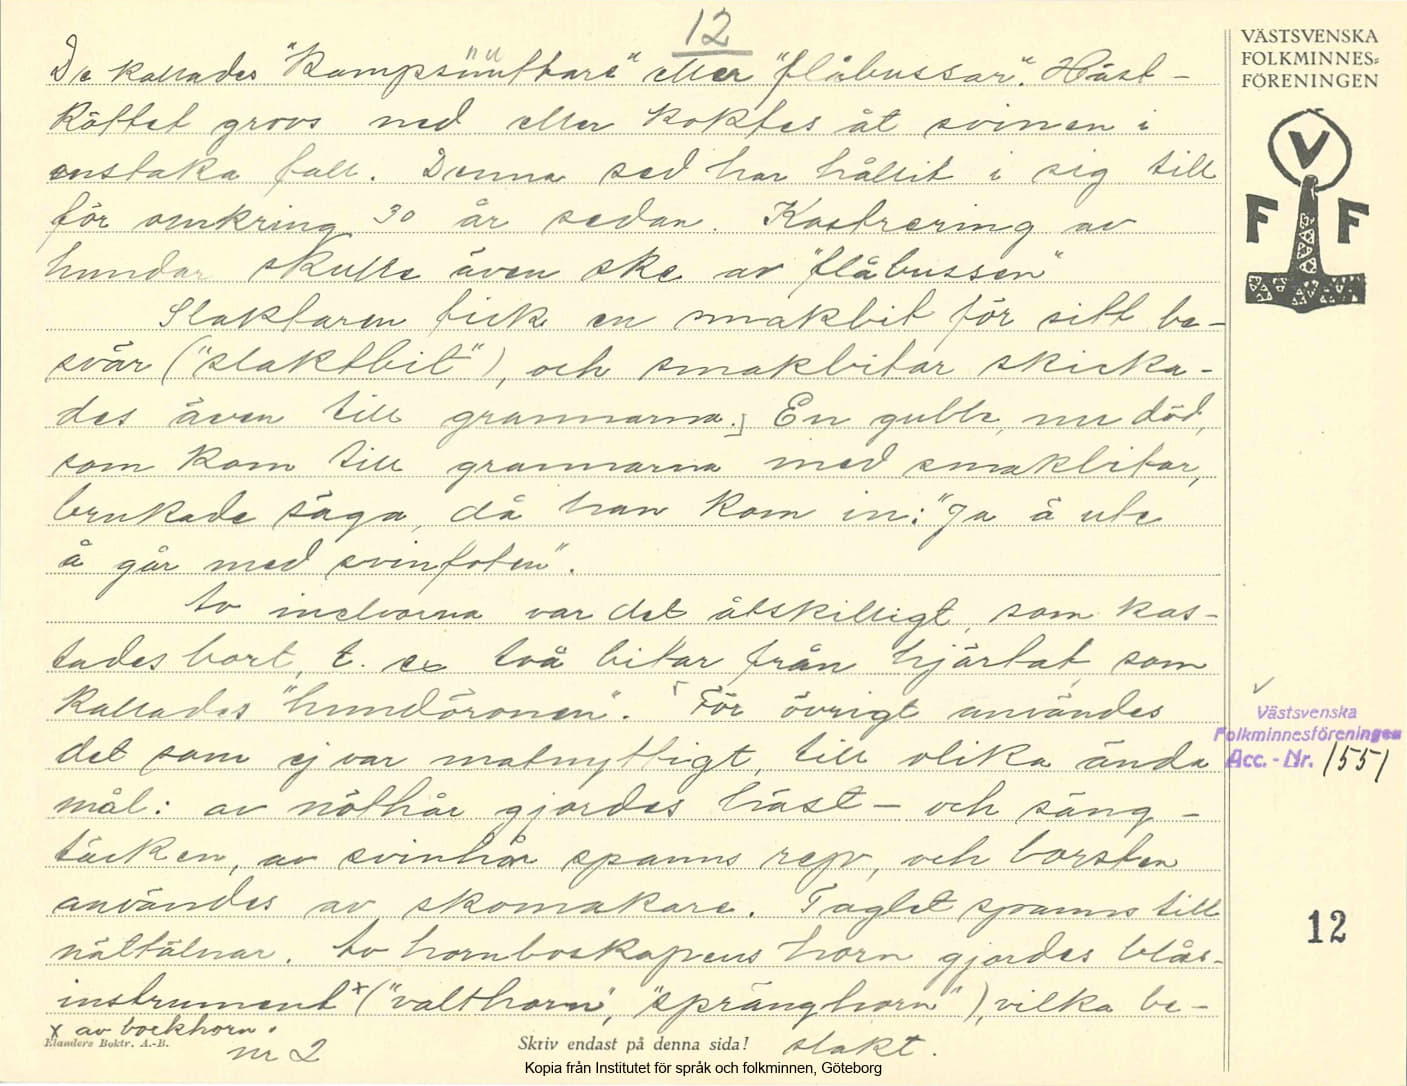 12
De kallades "kampsüttare" eller "flåbussar". Häst-
köttet grovs ned eller koktes åt svinen i
enstaka fall. Denna sed har hållit i sig till
för omkring 30 år sedan. Kastrering av
hundar skulle även ske av "flåbussen"
Slaktaren fick en smakbit för sitt be-
svär ("slaktbit"), och smakbitar skicka-
des även till grannarna.] En gubbe, nu död,
som kom till grannarna med smakbitar,
brukade säga, då han kom in: "Ja ä ute
å går med svinfoten".
Av inelvorna var det åtskilligt, som kas-
tades bort, t. ex två bitar från hjärtat, som
kallades "hundöronen". För övrigt användes
det som ej var matnyttigt, till olika ända
mål: av nöthår gjordes häst- och säng-
täcken, av svinhår spanns rep, och borsten
användes av skomakare. Taglet spanns till
nättälnar. Av hornboskapens horn gjordes blås-
instrument x ("valthorn", "språnghorn"), vilka be-
x av bockhorn.
nr 2
slakt.
Elanders Boktr. A.-B.
Skriv endast på denna sida!
Kopia från Institutet för språk och folkminnen, Göteborg
VÄSTSVENSKA
FOLKMINNES-
FÖRENINGEN
V
F F
Västsvenska
Folkminnesföreningen
Acc. - Nr. 1551
12